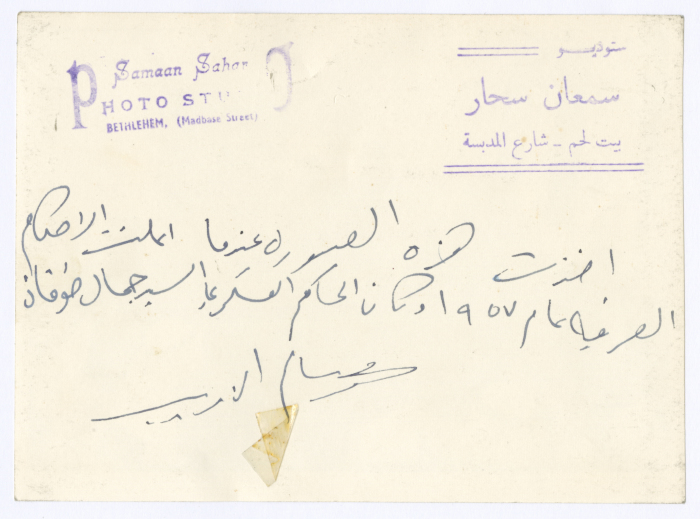 Samaan Sahar
PHOTO STU O
BETHLEHEM, (Madbase Street)
ستوديو
سمعان سحار
بيت لحم - شارع المدبسة
اخذت هذه الصوره عندما اعلنت الاحكام
العرفيه عام ١٩٥٧ وكان الحاكم العسكري السيد جمال طوقان